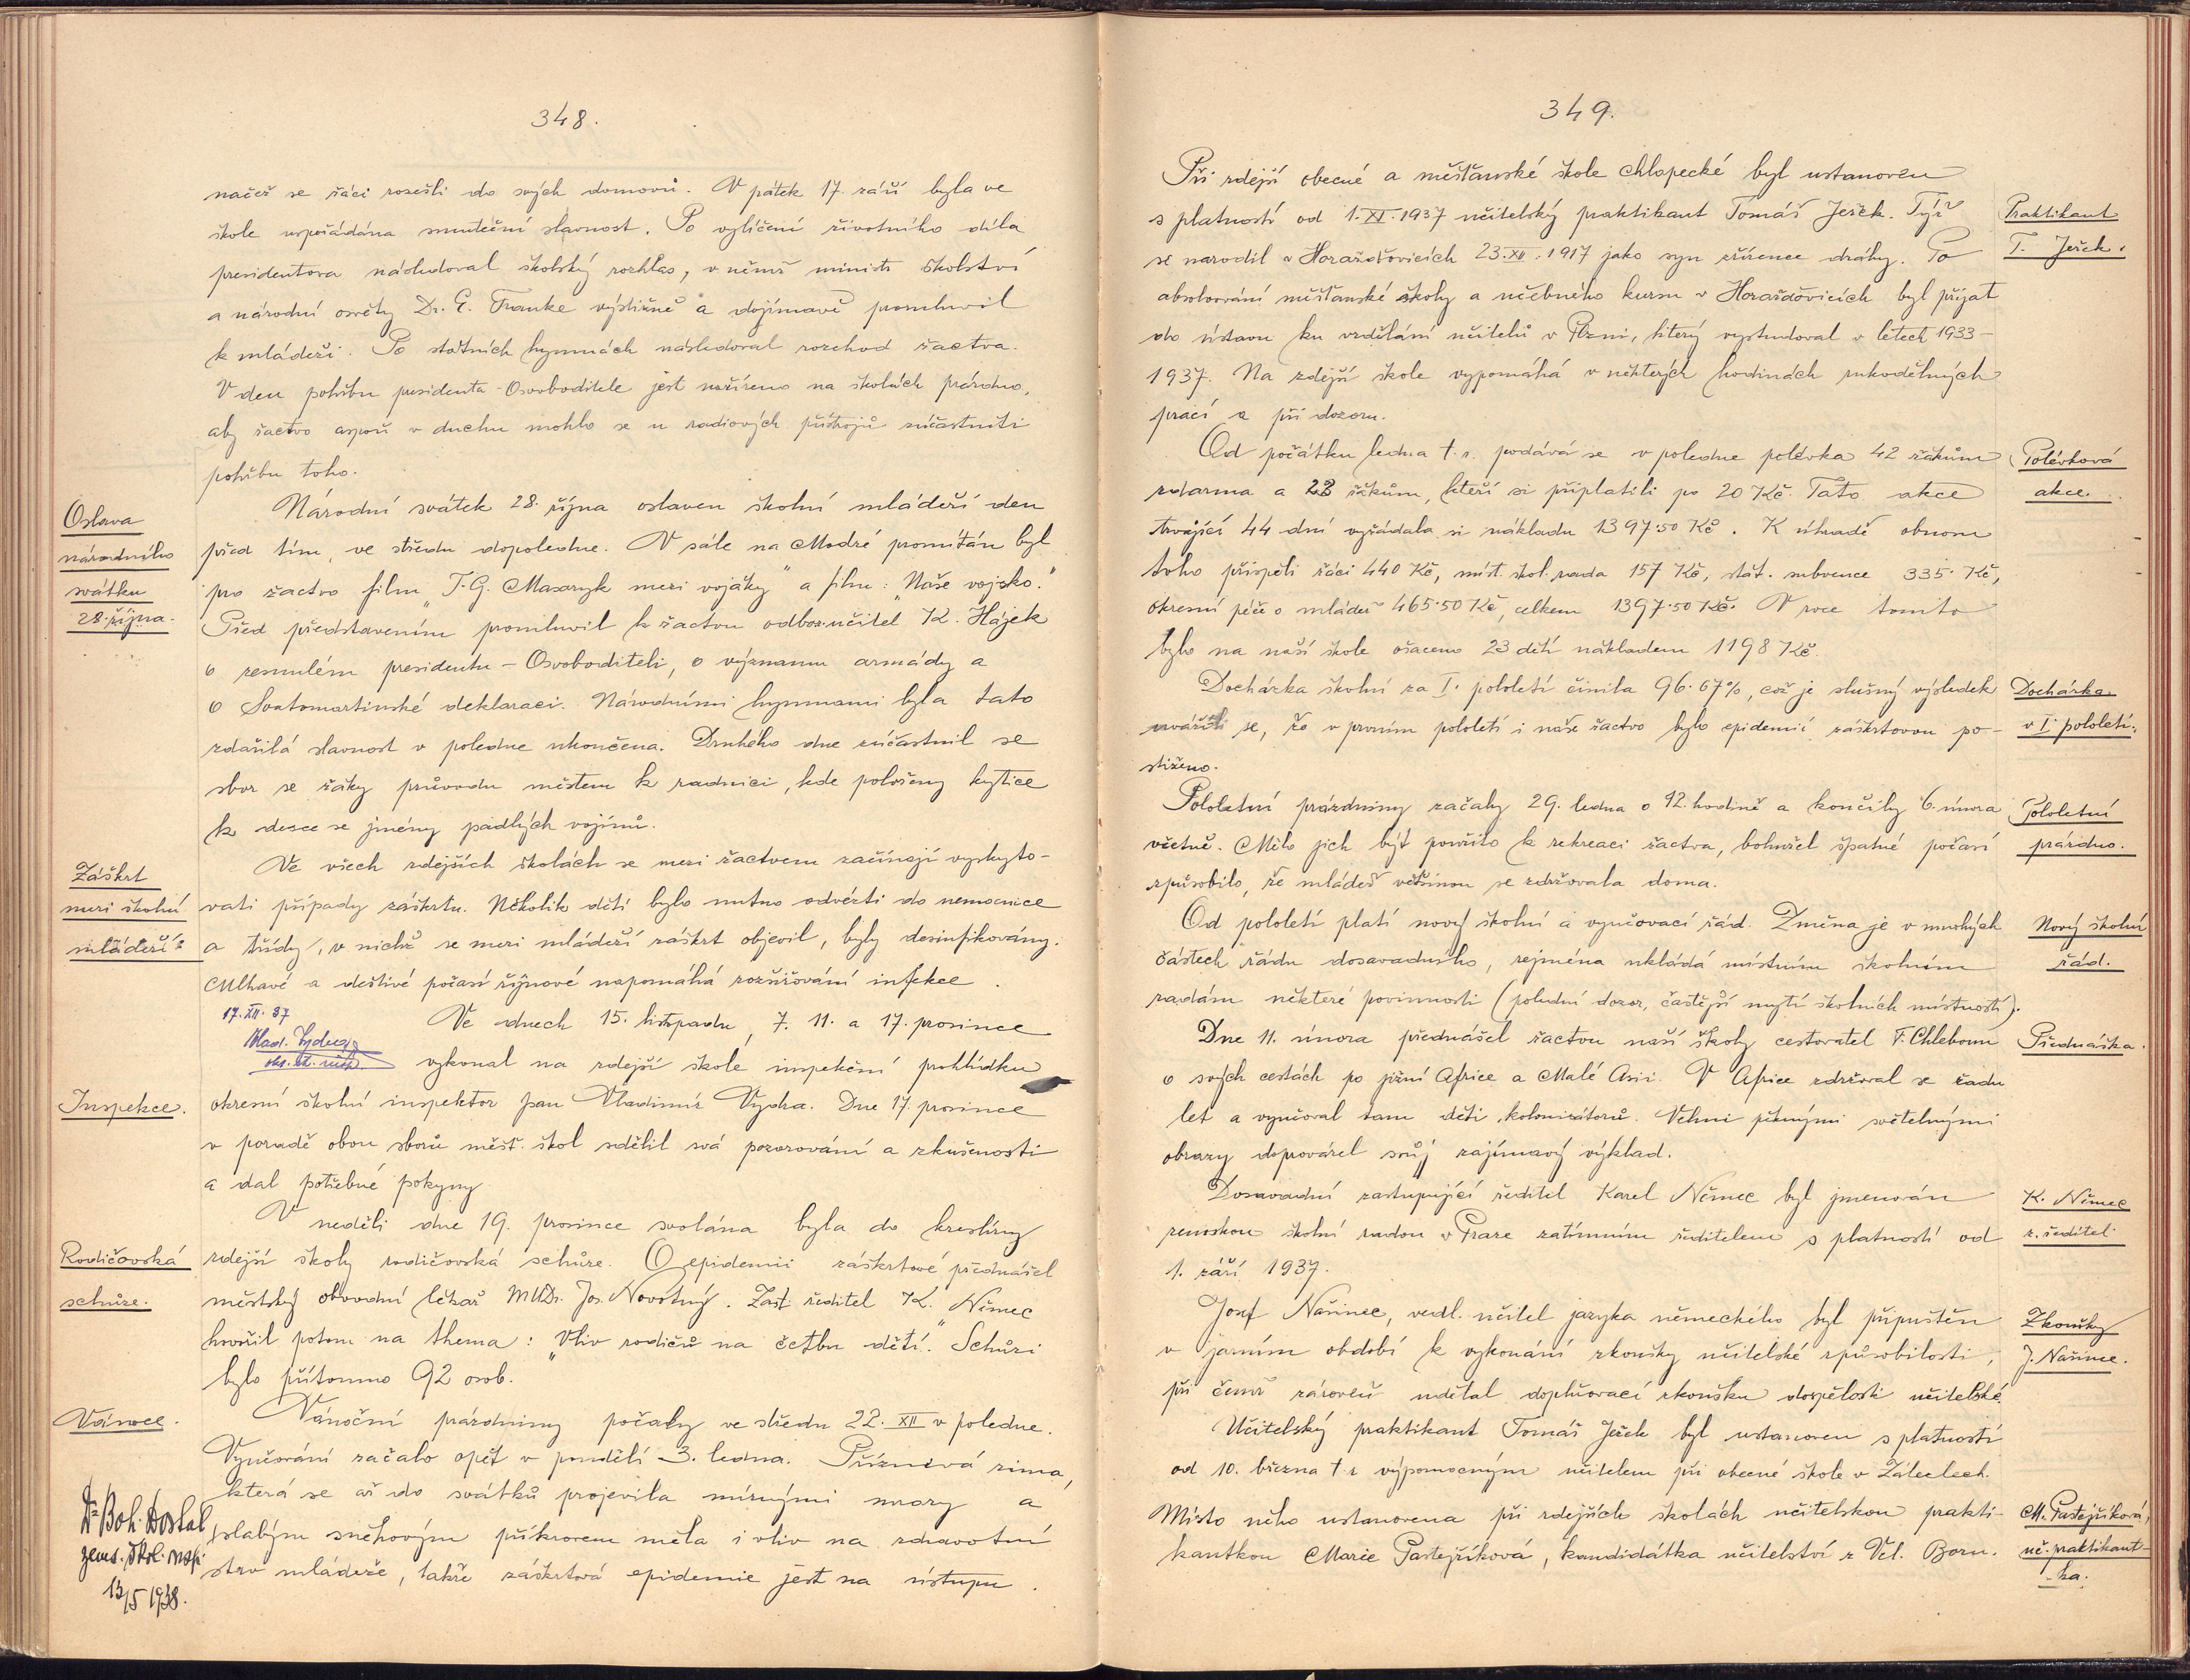 348.
načež se žáci rozešli do svých domovů. V pátek 17. září byla ve
škole uspořádána smuteční slavnost. Po vylíčení životního díla
presidentova následoval školský rozhlas, v němž ministr školství
a národní osvěty Dr. E. Franke výstižně a dojímavě promluvil
k mládeži. Po státních hymnách následoval rozchod žactva.
V den pohřbu presidenta-Osvoboditele jest nařízeno na školách prázdno,
aby žactvo aspoň v duchu mohlo se u radiových přístrojů zúčastniti
pohřbu toho.
Oslava
národního
svátku
28. října.
Národní svátek 28. října oslaven školní mládeží den
před tím, ve středu dopoledne. V sále na Modré promítán byl
pro žactvo film „T. G. Masaryk mezi vojáky" a film: „Naše vojsko."
Před představením promluvil k žactvu odbor. učitel K. Hájek
o zesnulém presidentu-Osvoboditeli, o významu armády a
o Svatomartinské deklaraci. Národními hymnami byla tato
zdařilá slavnost v poledne ukončena. Druhého dne zúčastnil se
sbor se žáky průvodu městem k radnici, kde položeny kytice
k desce se jmény padlých vojínů.
Záškrt
mezi školní
mládeží
Ve všech zdejších školách se mezi žactvem začínají vyskyto-
vati případy záškrtu. Několik dětí bylo nutno odvézti do nemocnice
a třídy, v nichž se mezi mládeží záškrt objevil, byly desinfikovány.
Mlhavé a deštivé počasí říjnové napomáhá rozšiřování infekce.
17. XII. 37
Vlad. Vydra
okr. šk. insp.
Inspekce.
Ve dnech 15. listopadu, 7. 11. a 17. prosince
vykonal na zdejší škole inspekční prohlídku
okresní školní inspektor pan Vladimír Vydra. Dne 17. prosince
v poradě obou sborů měšť. škol sdělil svá pozorování a zkušenosti
a dal potřebné pokyny
Rodičovská
schůze.
V neděli dne 19. prosince svolána byla do kreslírny
zdejší školy rodičovská schůze. O epidemii záškrtové přednášel
městský obvodní lékař MUDr. Jos. Novotný. Zast. ředitel K. Němec
hovořil potom na thema: „Vliv rodičů na četbu dětí." Schůzi
bylo přítomno 92 osob.
Vánoce.
Vánoční prázdniny počaly ve středu 22. XII v poledne.
Vyučování začalo opět v pondělí 3. ledna. Příznivá zima,
která se až do svátků projevila mírnými mrazy a
slabým sněhovým příkrovem měla i vliv na zdravotní
stav mládeže, takže záškrtová epidemie jest na ústupu.
Dr. Boh. Dostal
zems. škol. insp.
13/5 1938.
349.
Při zdejší obecné a měšťanské škole chlapecké byl ustanoven
s platností od 1. XI. 1937 učitelský praktikant Tomáš Ježek. Týž
se narodil v Horažďovicích 23. XII. 1917 jako syn zřízence dráhy. Po
absolvování měšťanské školy a učebného kursu v Horažďovicích byl přijat
do ústavu ku vzdělání učitelů v Plzni, který vystudoval v letech 1933-
1937. Na zdejší škole vypomáhá v některých hodinách rukodělných
prací a při dozoru.
Praktikant
T. Ježek.
Od počátku ledna t. r. podává se v poledne polévka 42 žákům
zdarma a 22 žákům, kteří si připlatili po 20 Kč. Tato akce
trvající 44 dní vyžádala si nákladu 1397·50 Kč. K úhradě obnosu
toho přispěli žáci 440 Kč, míst. škol. rada 157 Kč, stát. subvence 335· Kč,
okresní péče o mládež 465·50 Kč, celkem 1397·50 Kč. V roce tomto
bylo na naší škole ošaceno 23 dětí nákladem 1198 Kč.
Polévková
akce.
Docházka školní za I. pololetí činila 96·67%, což je slušný výsledek
uváží-li se, že v prvním pololetí i naše žactvo bylo epidemií záškrtovou po-
stiženo.
Docházka
v I. pololetí.
Pololetní prázdniny začaly 29. ledna o 12. hodině a končily 6. února
včetně. Mělo jich být použito k rekreaci žactva, bohužel špatné počasí
způsobilo, že mládež většinou se zdržovala doma.
Pololetní
prázdno.
Od pololetí platí nový školní a vyučovací řád. Změna je v mnohých
částech řádu dosavadního, zejména ukládá místním školním
radám některé povinnosti (polední dozor, častější mytí školních místností).
Nový školní
řád.
Dne 11. února přednášel žactvu naší školy cestovatel F. Chleboun
o svých cestách po jižní Africe a Malé Asii. V Africe zdržoval se řadu
let a vyučoval tam děti kolonisátorů. Velmi pěknými světelnými
obrazy doprovázel svůj zajímavý výklad.
Přednáška.
Dosavadní zastupující ředitel Karel Němec byl jmenován
zemskou školní radou v Praze zatímním ředitelem s platností od
1. září 1937.
K. Němec
z. ředitel
Josef Nařinec, vedl. učitel jazyka německého byl připuštěn
v jarním období k vykonání zkoušky učitelské způsobilosti,
při čemž zároveň udělal doplňovací zkoušku dospělosti učitelské.
Zkoušky
J. Nařince.
Učitelský praktikant Tomáš Ježek byl ustanoven s platností
od 10. března t. r. výpomocným učitelem při obecné škole v Zálezlech.
Místo něho ustanovena při zdejších školách učitelskou prakti-
kantkou Marie Pastejříková, kandidátka učitelství z Vel. Boru.
M. Pastejříková,
uč. praktikant-
ka.